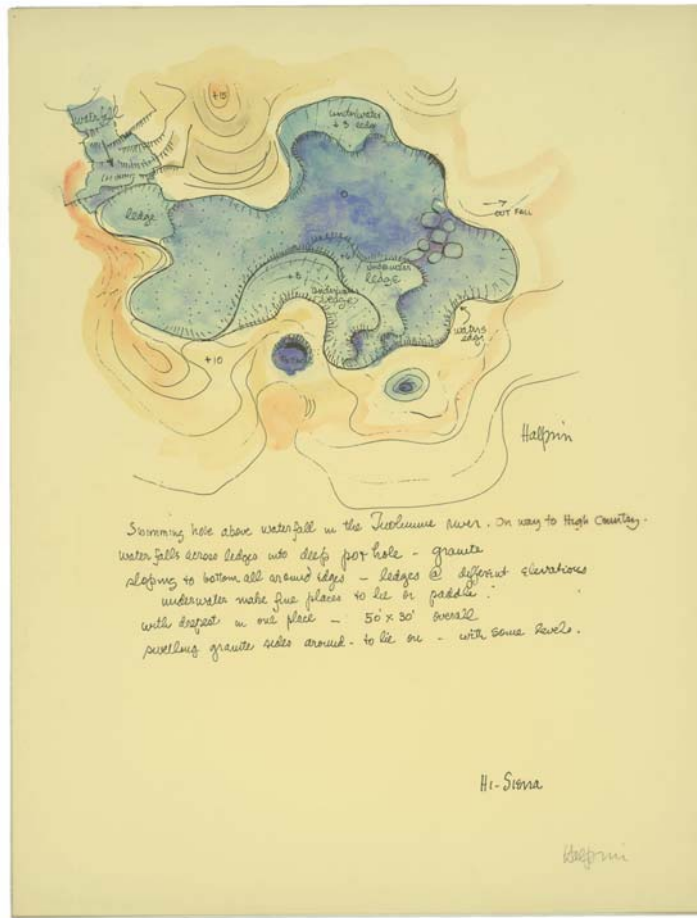 +15
underwater
+3 edge
waterfall
ledge
0
→
OUT FALL
+8
underwater
ledge
underwater
ledge
waters
edge
+10
Halprin
Swimming hole above waterfall in the Tuolumne river. On way to High Country.
Water falls across ledges into deep pot hole - granite
sloping to bottom all around edges - ledges @ different elevations
underwater make fine places to lie or paddle.
with deepest in one place - 50' x 30' overall
swelling granite sides around - to lie on - with some levels.
Hi-Sierra
Halprin